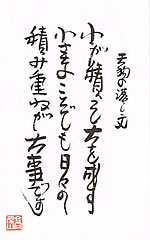 天狗の落し文
小が積って大を成す
小さなことでも日々の
積み重ねが大事